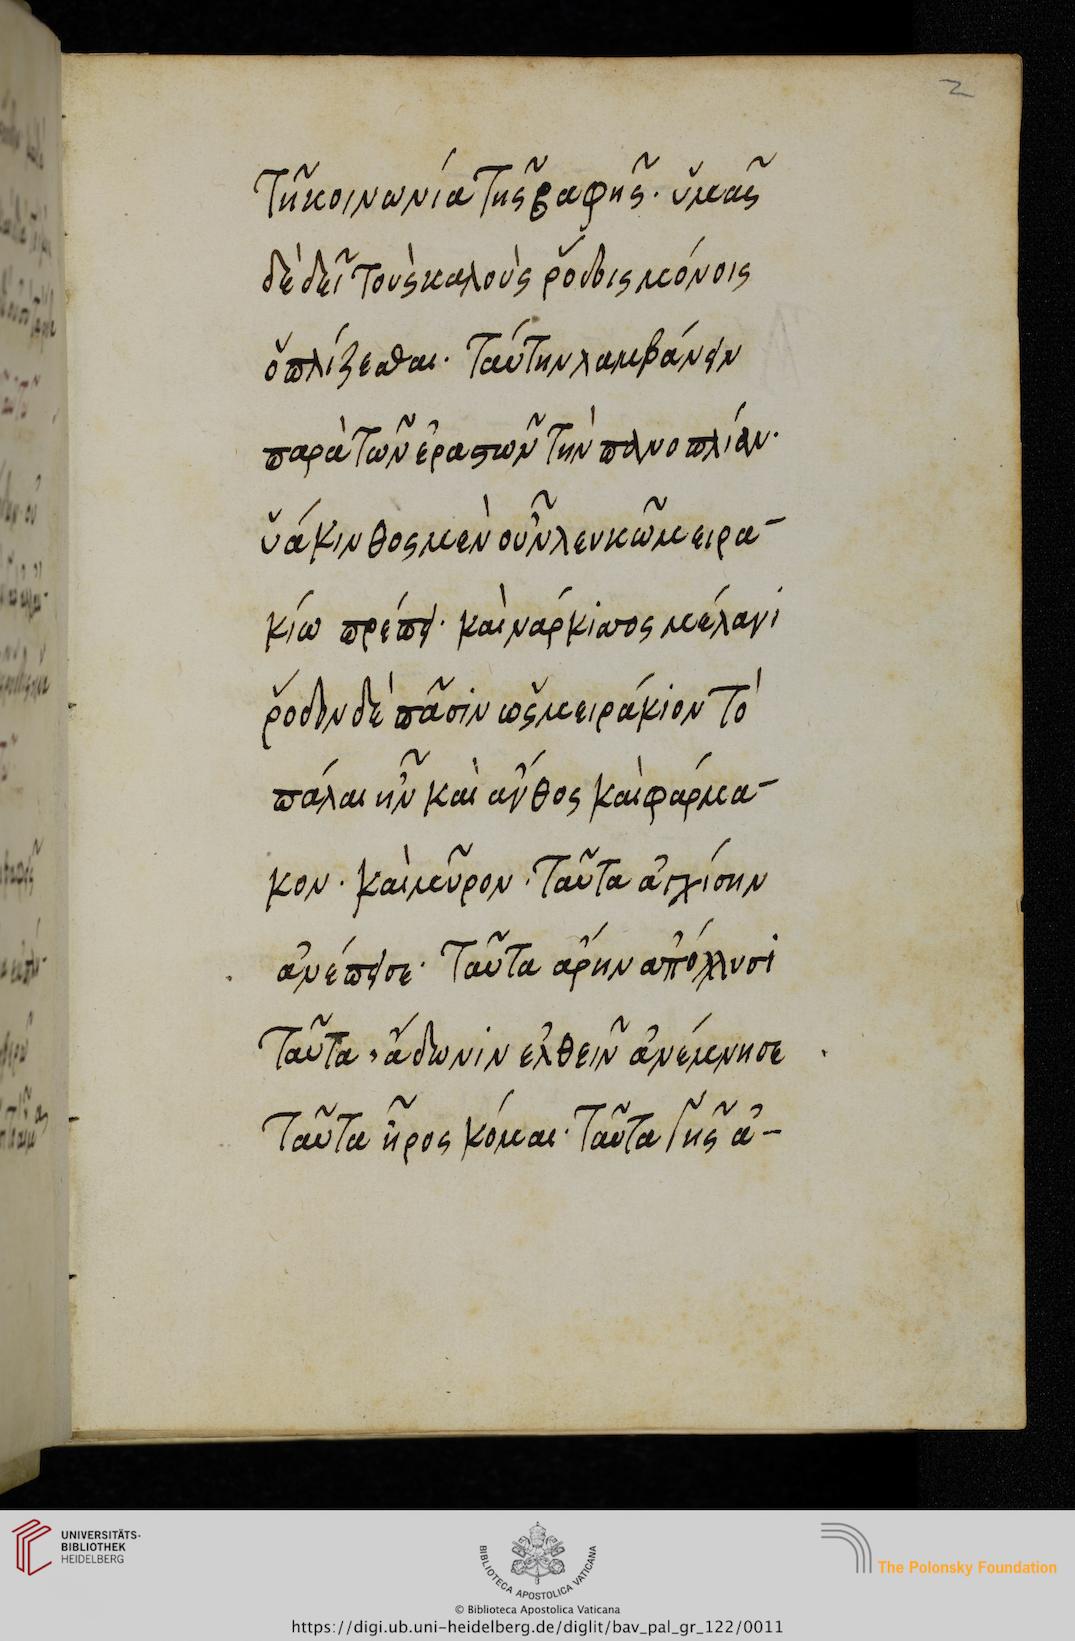 2
τῆ κοινωνία τῆς βαφῆς· ὑμᾶς
δὲ δεῖ τοὺς καλοὺς ῥόδοις μόνοις
ὁπλίζεσθαι· ταύτην λαμβάνειν
παρὰ τῶν ἐραστῶν τὴν πανοπλίαν·
ὑάκινθος μὲν οὖν λευκῶ μειρα-
κίω πρέπει· καὶ νάρκισσος μέλανι
ῥόδον δὲ πᾶσιν ὡς μειράκιον τὸ
πάλαι ἦν καὶ ἄνθος καὶ φάρμα-
κον· καὶ μῦρον· ταῦτα ἀγχίσην
ἀνέπεισε· ταῦτα ἄρην ἀπόλλυσι
ταῦτα ἄδωνιν ἐλθεῖν ἀνέμνησε
ταῦτα ἦρος κόμαι· ταῦτα γῆς ἀ-
UNIVERSITÄTS-
BIBLIOTHEK
HEIDELBERG
BIBLIOTECA APOSTOLICA VATICANA
The Polonsky Foundation
© Biblioteca Apostolica Vaticana
https://digi.ub.uni-heidelberg.de/diglit/bav_pal_gr_122/0011